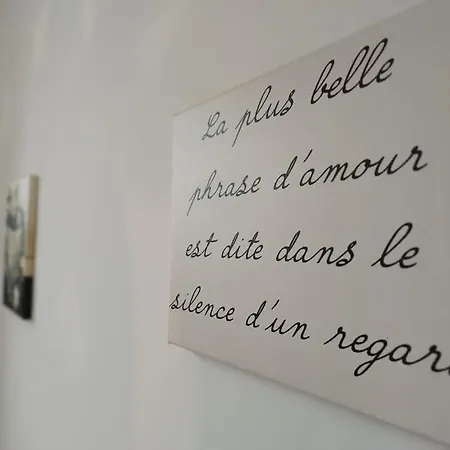 La plus belle
phrase d'amour
est dite dans le
silence d'un regar